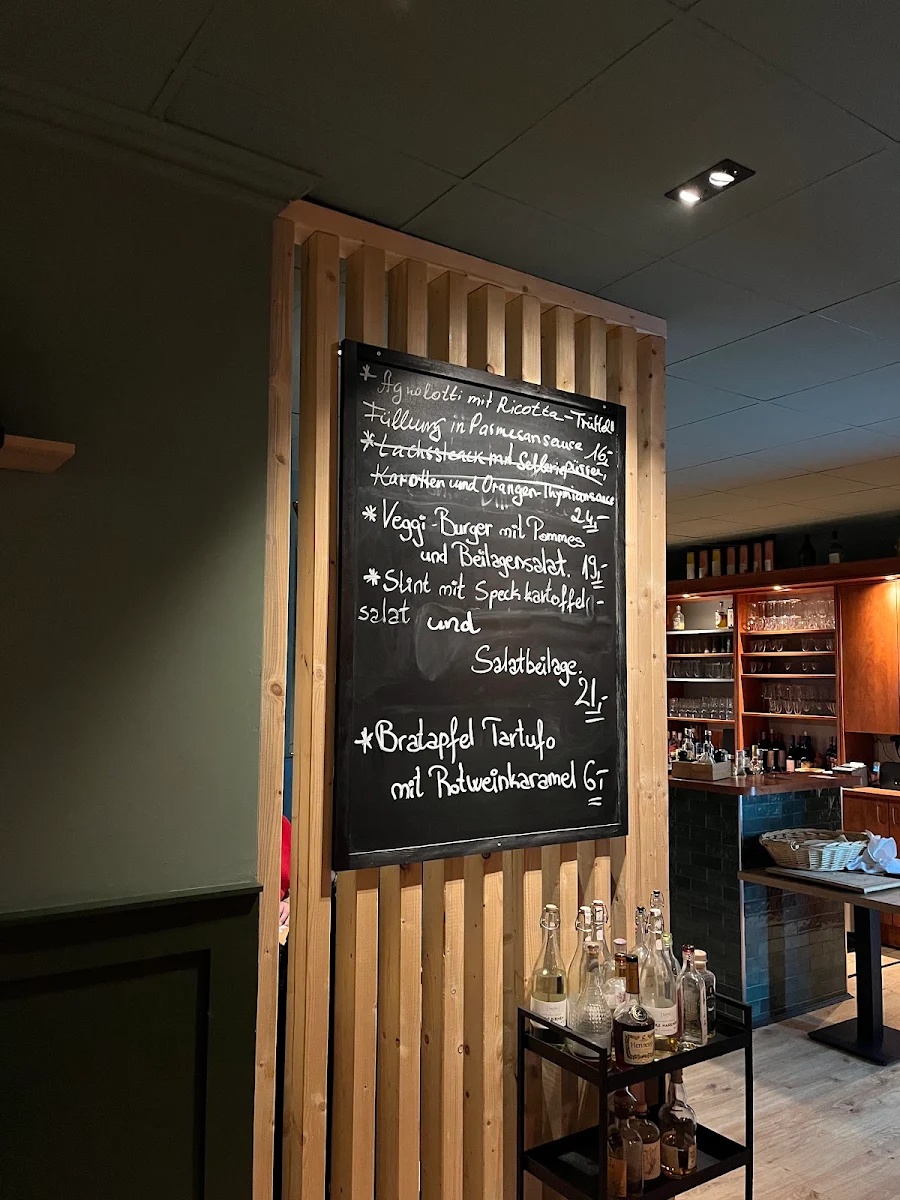 * Agnolotti mit Ricotta-Trüffel
Füllung in Parmesansauce 16,-
* Lachssteack mit Selleriepüree,
Karotten und Orangen-Thymiansauce
24,-
* Veggi-Burger mit Pommes
und Beilagensalat. 19,-
* Stint mit Speckkartoffel-
salat und
Salatbeilage.
21,-
* Bratapfel Tartufo
mit Rotweinkaramel 6,-
Hennessy